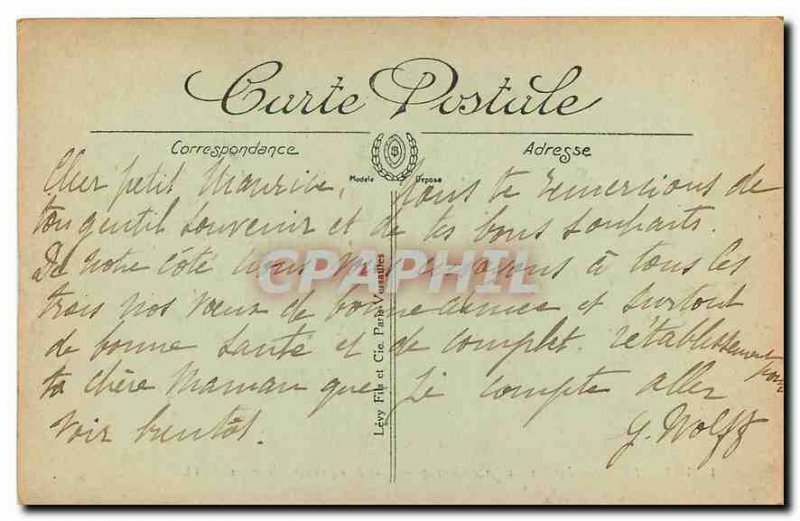 Carte Postale
Correspondance
Adresse
Modèle Déposé
Cher petit Maurice, Nous te remercions de
ton gentil souvenir et de tes bons souhaits.
De notre côté nous vous envoyons à tous les
trois nos vœux de bonne année et surtout
de bonne santé et de complet rétablissement pour
ta chère Maman que je compte aller
voir bientôt.
G. Wolff
Lévy Fils et Cie. Paris-Versailles
CPAPHIL